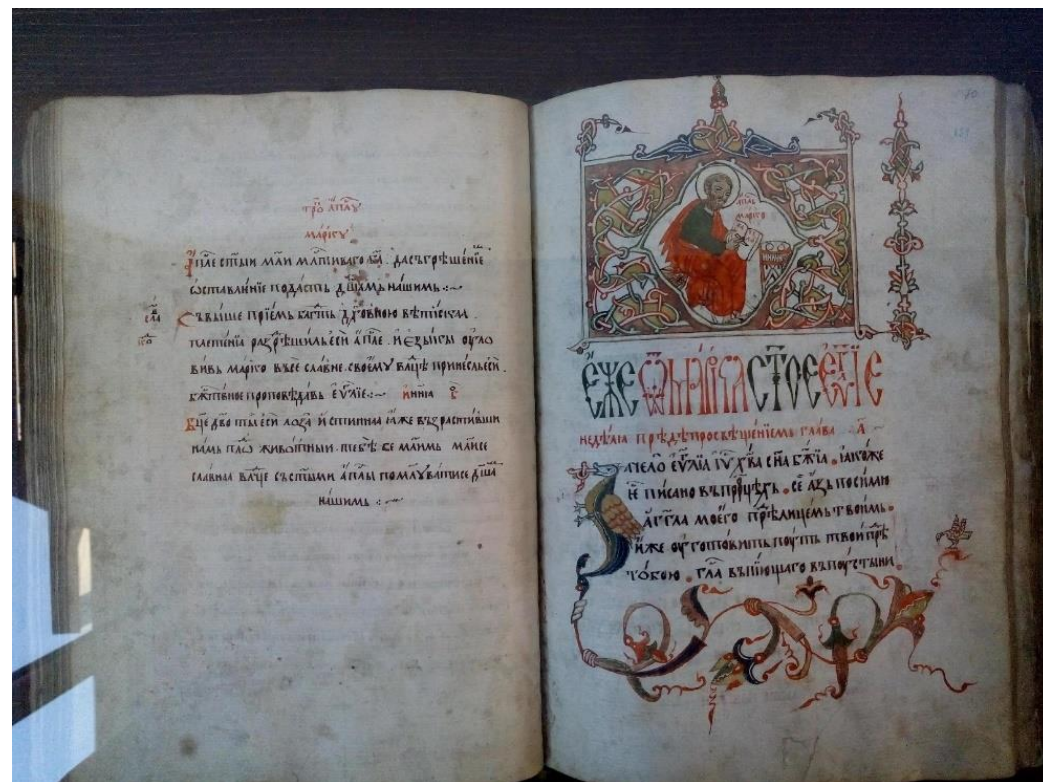 тро҃ апл҃ꙋ
маркꙋ
апл҃е ст҃ыи мл҃и млⷭ҇тиваго ба҃ . да съгрѣшенїе
ѡставленїе подасть дш҃амь нашимь :~
Съвыше прїемь блгⷣть дх҃овною вѣтїискаа
плетенїа разрѣшиль еси апл҃е . и езыкы оуло
вивь марко въсе славне . своемꙋ влⷣцѣ принесль еси .
бжⷭ҇твное проповѣдавь еѵⷢ҇лїе :~ инына
Бц҃е дв҃о ты еси лоза истиннаа иже възрастивши
намь плⷪ҇ животныи тебѣ се мл҃имь мл҃и се
славнаа влⷣчце съ ст҃ыми апл҃ы помлⷧ҇ꙋвати се дш҃а
нашимь :~
сла
апⷭ҇ль
марко
еже ѿ марка ст҃ое еѵⷢ҇лїе
недѣлꙗ прѣдь просвѣщенїемь глава а҃
Зачело еѵⷢ҇лїа іѵ҃ х҃ва сн҃а бж҃їа . ꙗкоже
нⷭ҇ писано въ прⷪ҇цѣхь . се азь посилаю
агг҃ла моего прⷣѣ лицемь твоимь .
иже оуготовить поуть твои прѣⷣ
тобою . гла҃ въпиющаго въ поустыни .